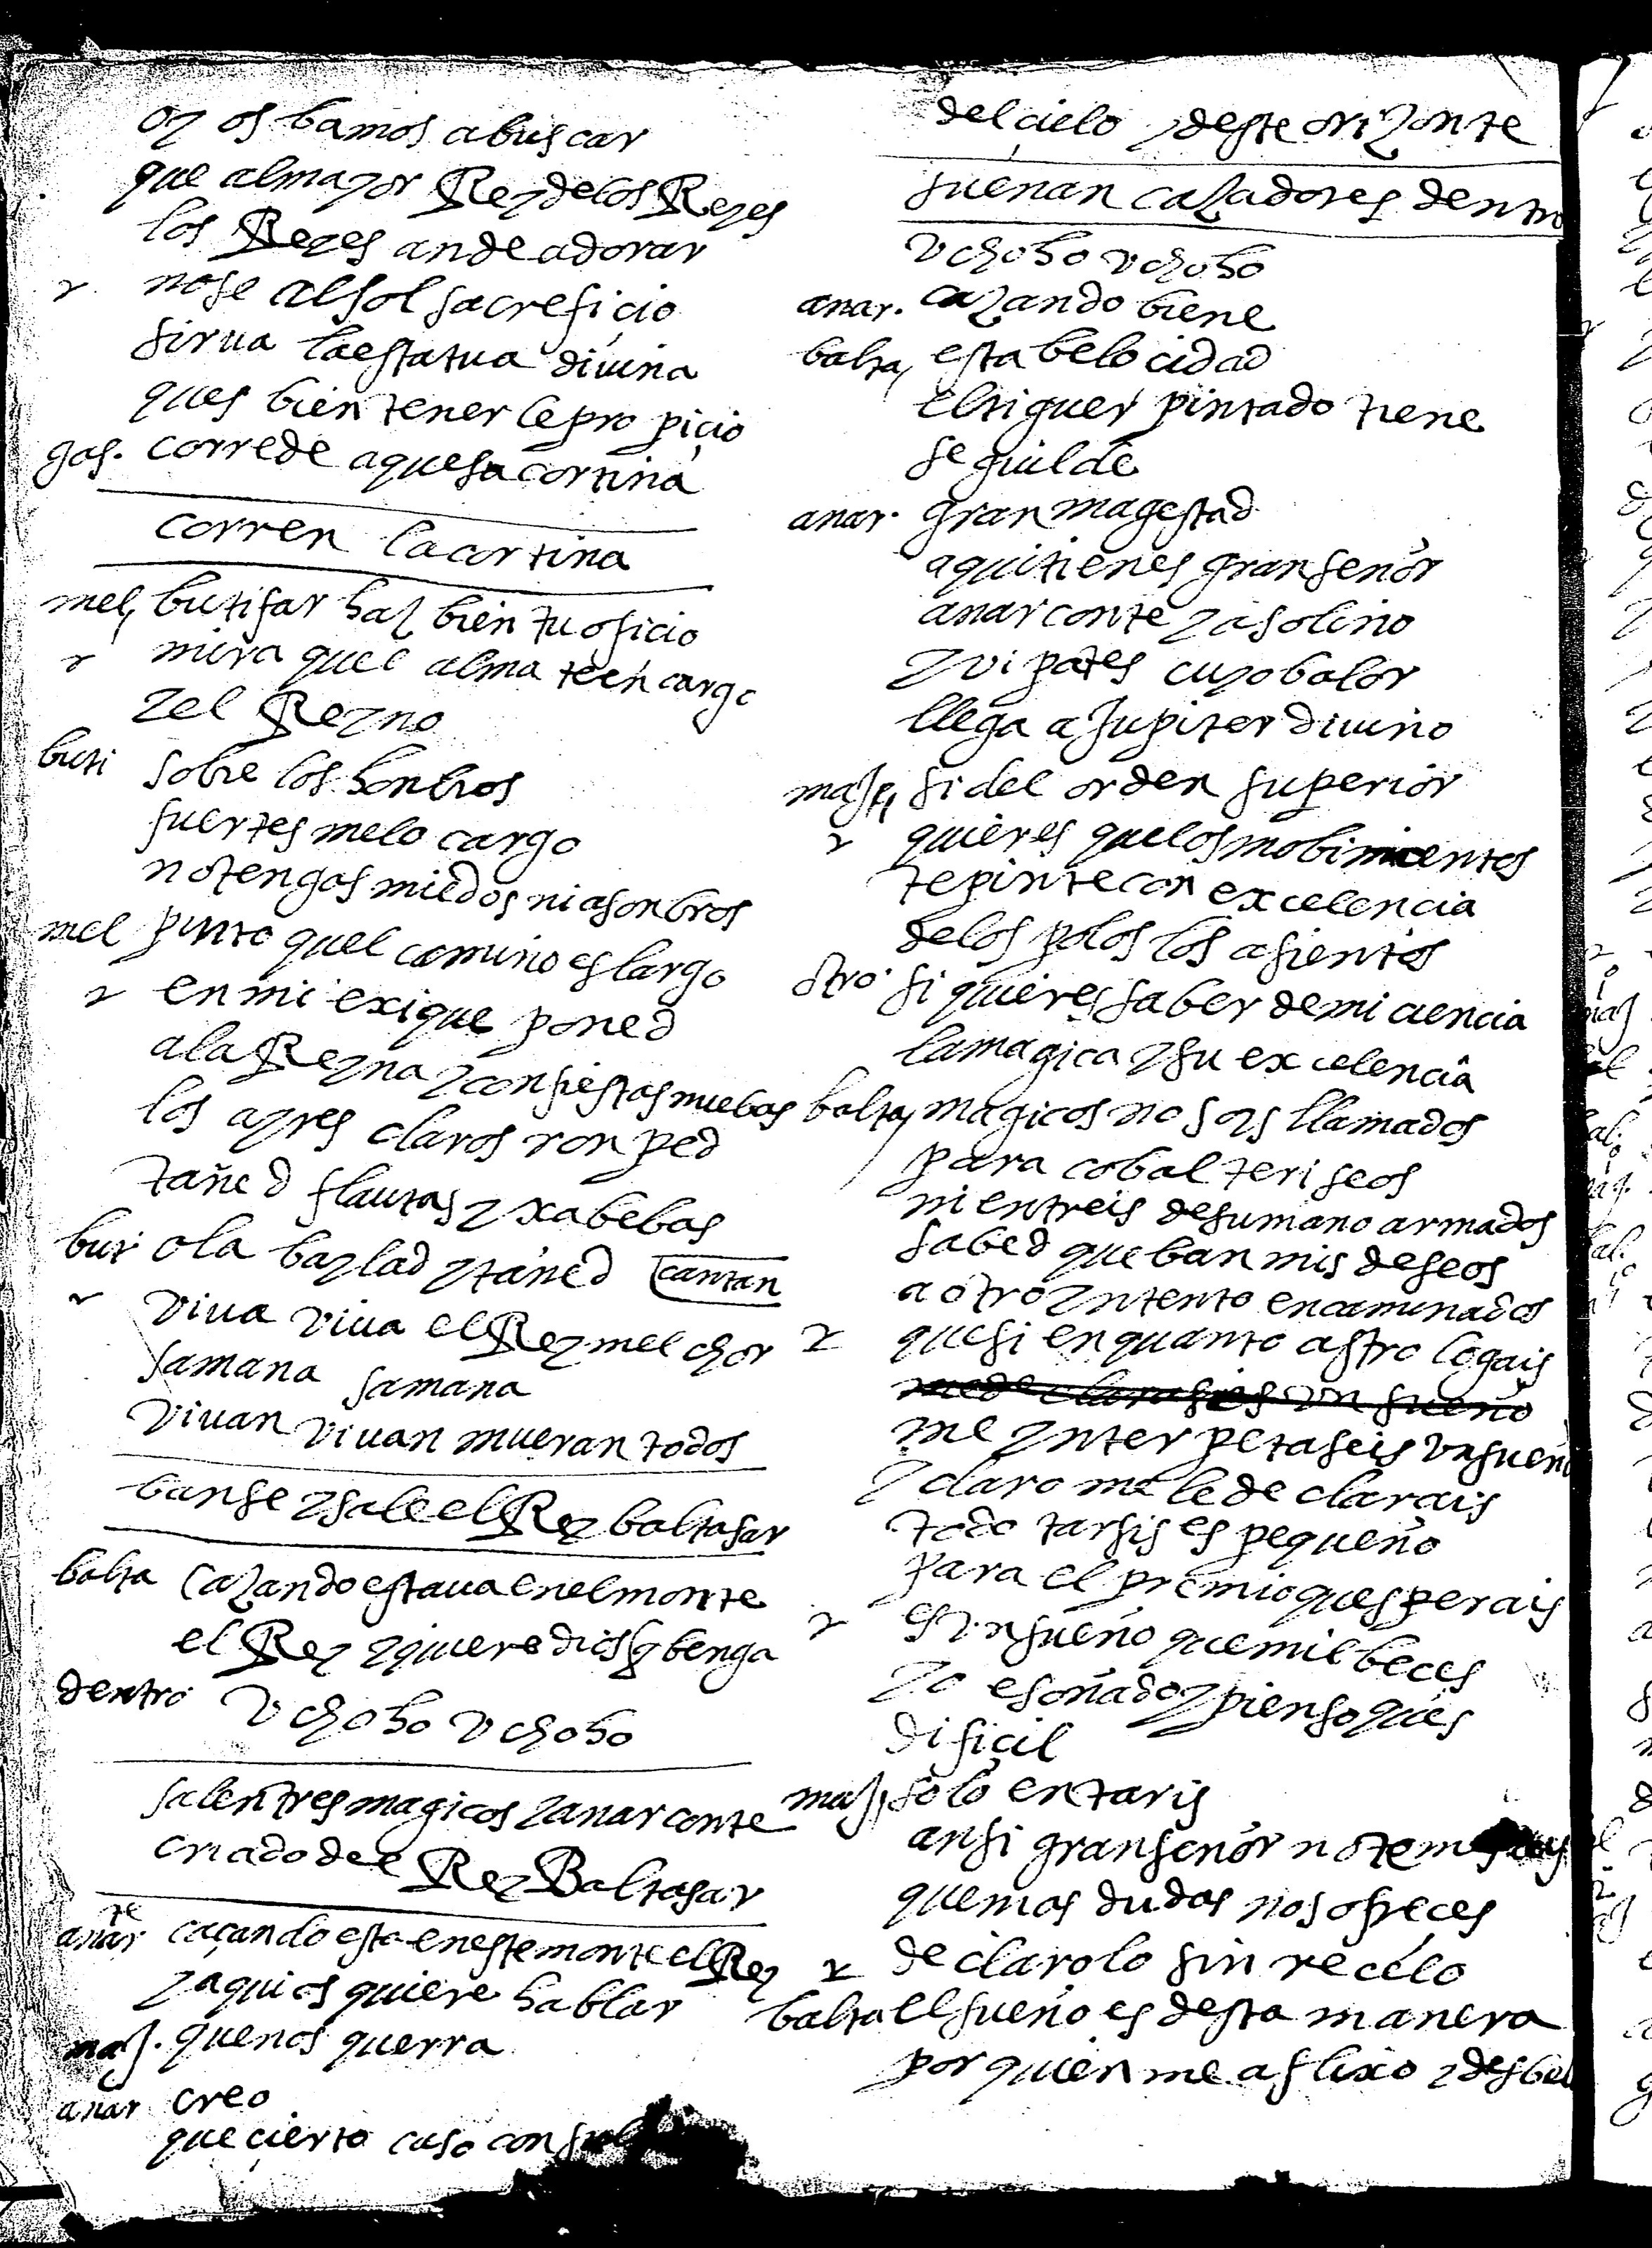 oy os bamos a buscar
que al mayor Rey de los Reyes
los Reyes an de adorar
r no se al sol sacreficio
sirua la estatua diuina
ques bien tener le propiçio
gas. corred e aquesa cortina
corren la cortina
mel, butifar haz bien tu oficio
r mira quel alma te encargo
y el Reyno
buti sobre los honbros
fuertes me lo cargo
no tengas miedos ni asonbros
mel pinto quel camino es largo
r en mi exique poned
a la Reyna y con fiestas nuebas
los ayres claros ronped
tañed flautas y xabebas
buti ola baylad y tañed cantan
r viua viua el Rey melchor
samana samana
viuan viuan mueran todos
banse y sale el Rey baltasar
balta cazando estaua en el monte
el Rey y quiere dios q benga
dentro v cho ho v cho ho
salen tres magicos y anarconte
criado del Rey Baltasar
anar te caçando esta en este monte el Rey
y aqui os quiere hablar
maj. que nos querra
anar creo
que çierto caso consul
del çielo y deste orizonte
suenan cazadores dentro
v cho ho v cho ho
anar. cazando biene
balta, esta belocidad
el tiguer pintado tiene
seguilde
anar. gran magestad
aqui tienes gran señor
anarconte y asolino
y vipates cuyo balor
llega a Jupiter diuino
maj, si del orden superior
r quieres que los mobimientos
te pinte con excelençia
de los polos los asientos
otro. si quieres saber de mi ciencia
la magica y su excelencia
balta, magicos no soys llamados
para cobalteriseos
ni entreis desumano armados
sabed que ban mis deseos
a otro yntento encaminados
r que si en quanto astrologais
me declarasies vn sueño
me ynterpetaseis vn sueño
y claro me le declarais
todo tarsis es pequeño
para el premio quesperais
r es vn sueño que mil beces
yo e soñado y pienso ques
difiçil
maj, solo en taris
ansi gran señor no tem
que mas dudas nos ofreces
r declarolo sin recelo
balta el sueño es desta manera
por quien me aflixo y desbel